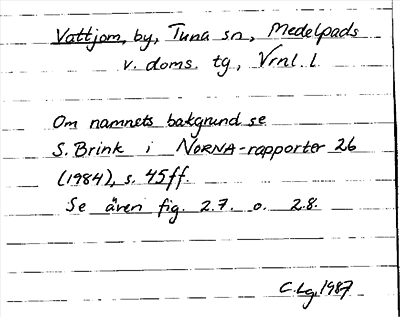 Vattjom, by, Tuna sn, Medelpads
v. doms. tg, Vrnl. l.
Om namnets bakgrund se
S. Brink i NORNA-rapporter 26
(1984), s. 45ff.
Se även fig. 2.7. o. 2.8.
C.Lg, 1987